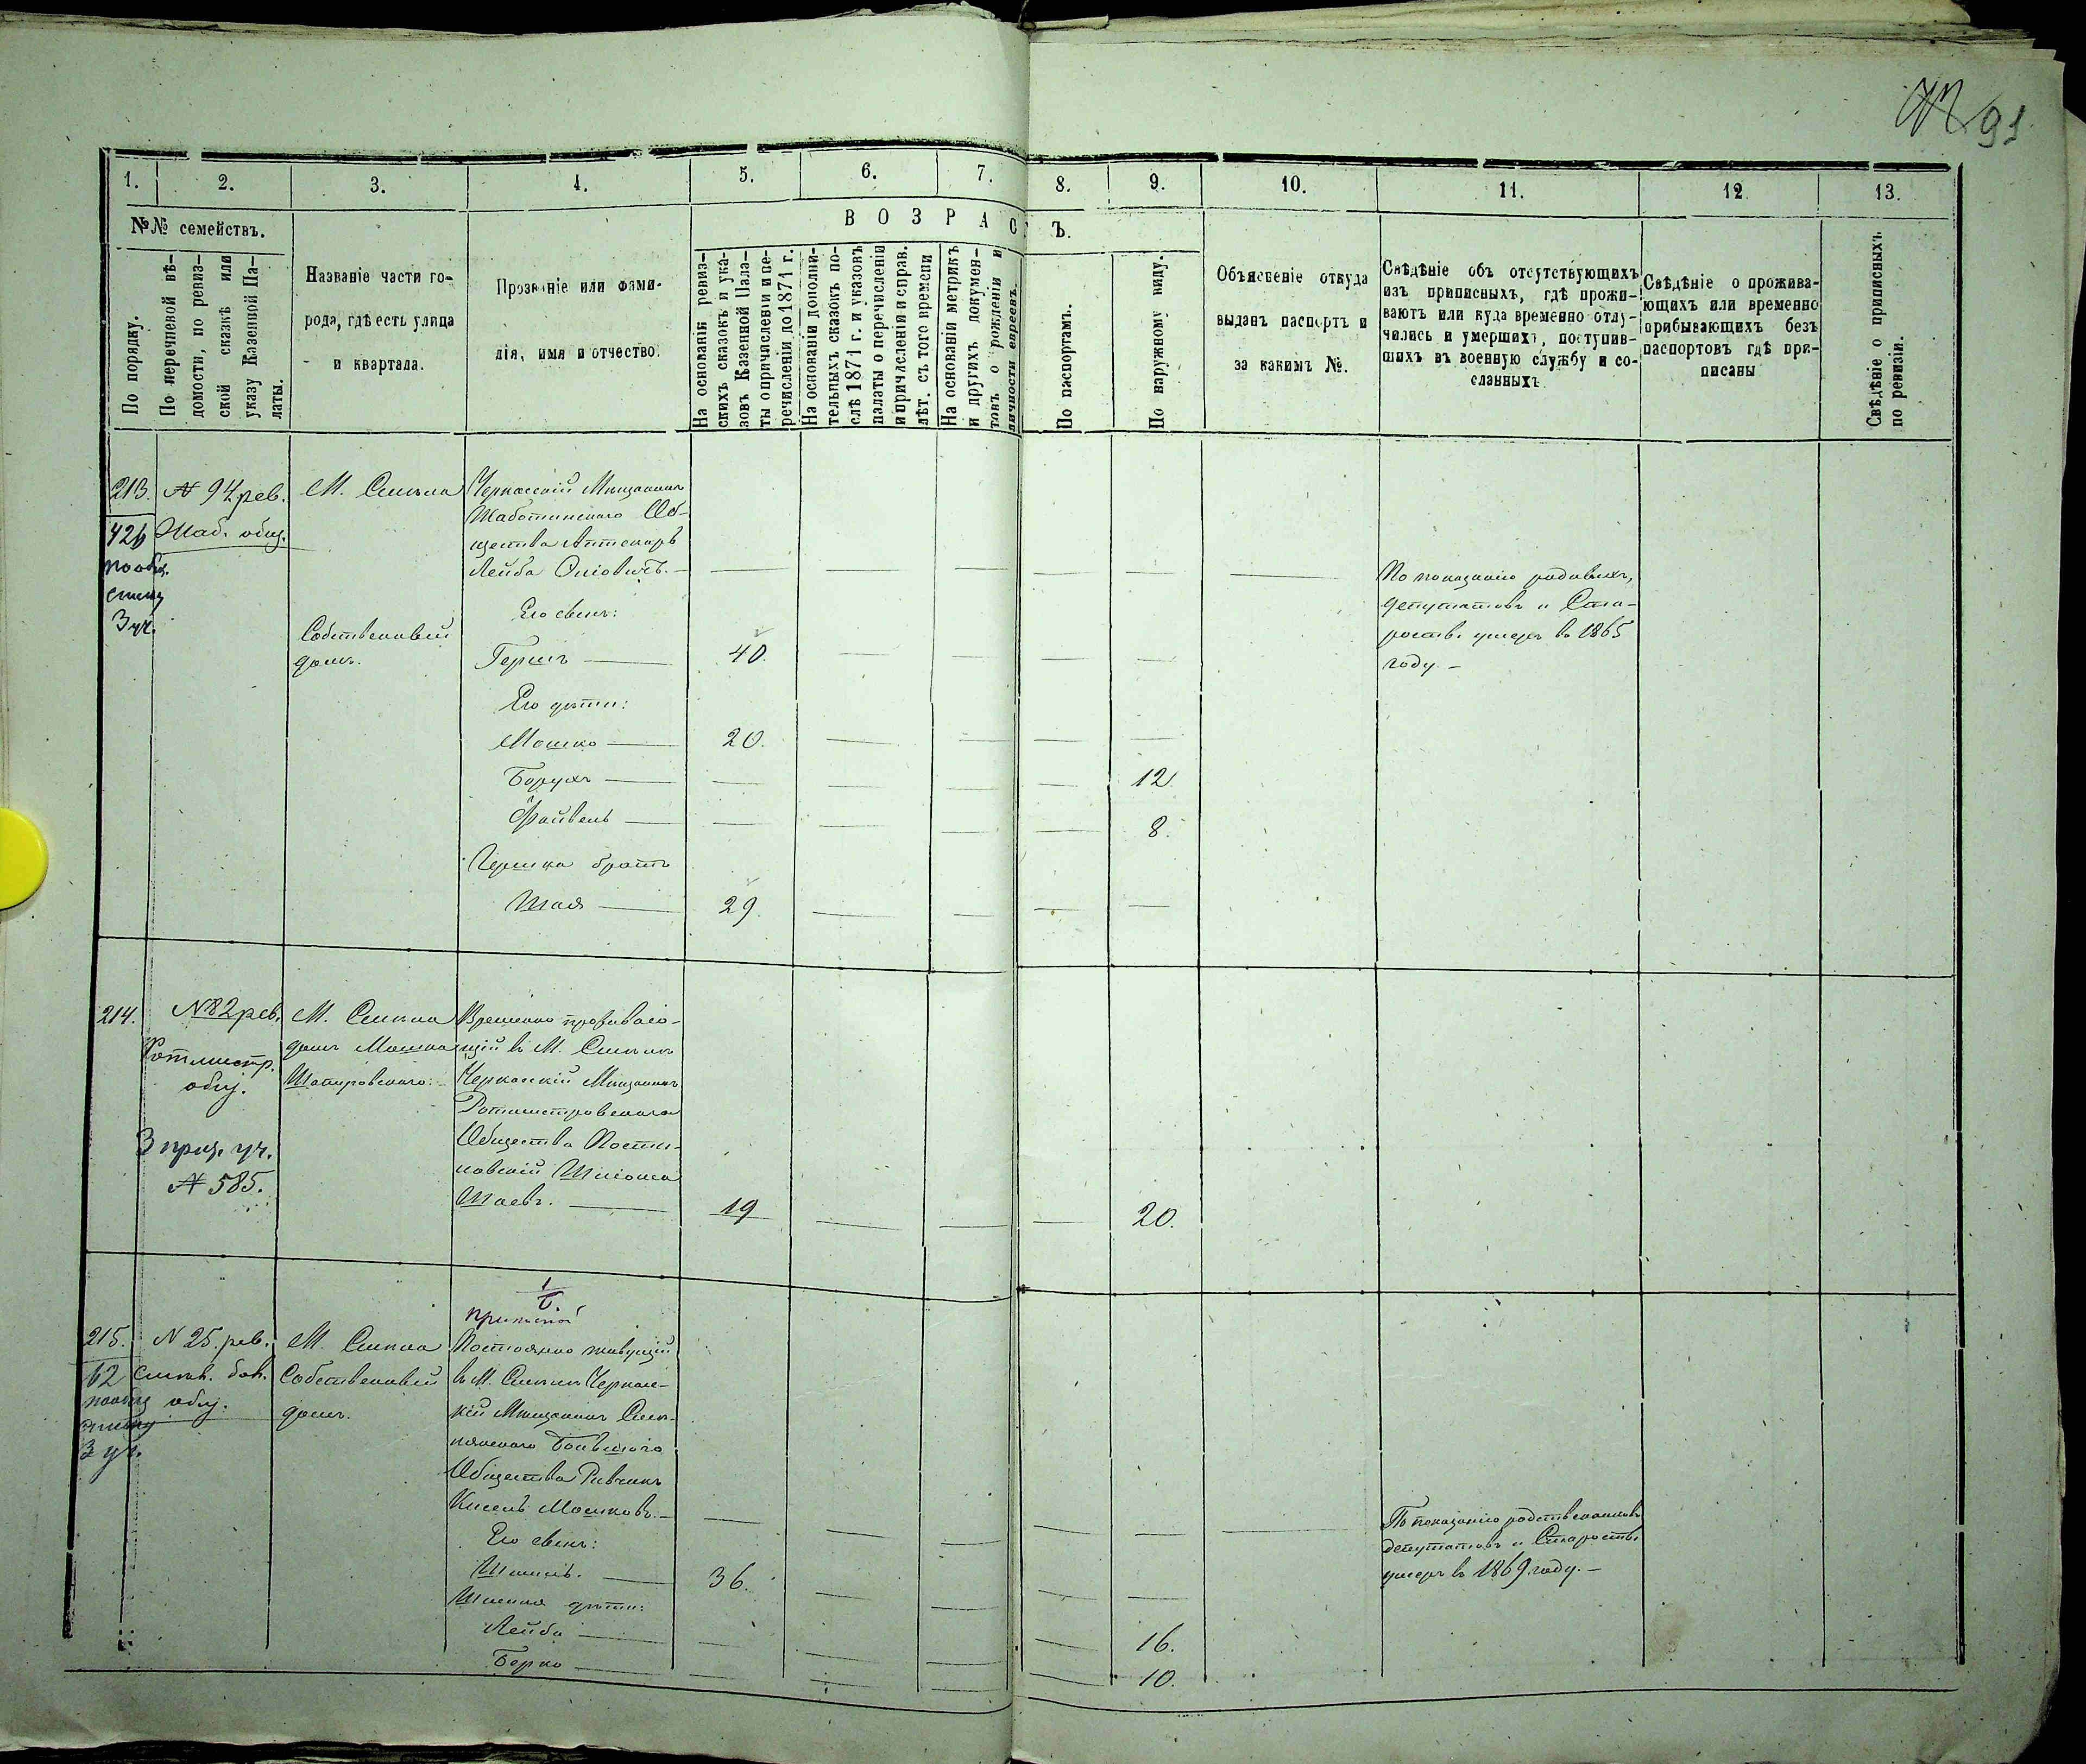 91
1.
2.
3.
4.
5.
6.
7.
8.
9.
10.
11.
12
13.
№№ семействъ.
ВОЗРАС Ъ.
По порядку.
По перечневой вѣ-
домости, по ревиз-
ской сказкѣ или
указу Казенной Па-
латы.
Названіе части го-
рода, гдѣ есть улица
и квартала.
Прозваніе или фами-
лія, имя и отчество.
На основаніи ревиз-
скихъ сказокъ и ука-
зовъ Казенной Пала-
ты о причисленіи и пе-
речисленіи до 1871 г.
На основаніи дополни-
тельныхъ сказокъ по-
слѣ 1871 г. и указовъ
палаты о перечисленіи
и причисленіи и справ.
лѣт. съ того времени
На основаніи метрикъ
и другихъ докумен-
товъ о рожденіи и
личности евреевъ.
По паспортамъ.
По наружному виду.
Объясненіе откуда
выданъ паспортъ и
за какимъ №.
Свѣдѣніе объ отсутствующихъ
изъ приписныхъ, гдѣ прожи-
ваютъ или куда временно отлу-
чились и умершихъ, поступив-
шихъ въ военную службу и со-
сланныхъ.
Свѣдѣніе о прожива-
ющихъ или временно
прибывающихъ безъ
паспортовъ гдѣ при-
писаны
Свѣдѣніе о приписныхъ
по ревизіи.
213.
426
по общ.
списку
3 уч.
№ 94 рев.
Шаб. общ.
М. Смѣла
Собственный
домъ.
Черкасскій Мѣщанинъ
Жаботинскаго Об-
щества Аптекарь
Лейба Оліовичъ.
Его сынъ:
Гершъ 40
Его дѣти:
Мошко 20.
Борухъ 12
Файвель 8.
Гершка братъ
Шая 29
По показанію
депутатовъ и Ста-
росты умеръ въ 1865
году.
214.
№ 82 рев.
Ротмистр.
общ.
3 приз. уч.
№ 585.
М. Смѣла
домъ Мошка
Шапировскаго.
Временно проживаю-
щій въ М. Смѣлѣ
Черкасскій Мѣщанинъ
Ротмистровскаго
Общества
Шліома
Шаевъ. 19 20.
215.
62
по общ
списку
3 уч.
№ 25. рев.
Смѣл. бол.
общ.
М. Смѣла
Собственный
домъ.
Постоянно живущій
въ М. Смѣлѣ Черкас-
кій Мѣщанинъ Смѣ-
лянскаго Большаго
Общества Ривчинъ
Кисель Мошковъ.
Его сынъ:
36.
дѣти:
Лейба 16.
Берко 10.
По показанію родственниковъ
депутатовъ и Старосты
умеръ въ 1869 году.